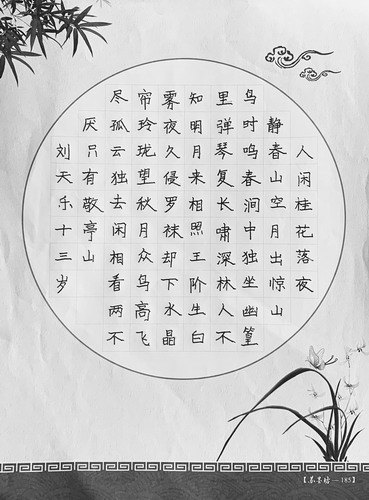 人闲桂花落夜
静春山空月出惊山
鸟时鸣春涧中独坐幽篁
里弹琴复长啸深林人不
知明月来相照王阶生白
雾夜久侵罗袜却下水晶
帘玲珑望秋月众鸟高飞
尽孤云独去闲相看两不
厌只有敬亭山
刘天乐十三岁
185